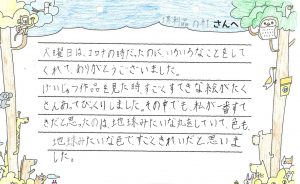 さんへ
火曜日は、コロナの時だったのに、いろいろなことをして
くれて、ありがとうございました。
げいじゅつ作品を見た時、すごくすてきな絵がたく
さんあってびっくりしました。その中でも、私が一番すて
きだと思ったのは、地球みたいな丸をしていて、色も、
地球みたいな色で、すごくきれいだと思いま
した。